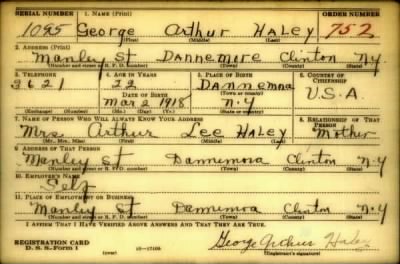 SERIAL NUMBER 1. NAME (Print) ORDER NUMBER
1095 George Arthur HALEY 752
(First) (Middle) (Last)
2. ADDRESS (Print)
Manley St Dannemore Clinton N.y
(Number and street or R. F. D. number) (Town) (County) (State)
3. TELEPHONE 4. AGE IN YEARS 5. PLACE OF BIRTH 6. COUNTRY OF CITIZENSHIP
3621 22 DANNEMORA U.S.A.
DATE OF BIRTH (Town or county)
Mar 2 1918 N.Y
(Exchange) (Number) (Mo.) (Day) (Yr.) (State or country)
7. NAME OF PERSON WHO WILL ALWAYS KNOW YOUR ADDRESS 8. RELATIONSHIP OF THAT PERSON
Mrs Arthur Lee HALEY Mother
(Mr., Mrs., Miss) (First) (Middle) (Last)
9. ADDRESS OF THAT PERSON
Manley St Dannemora Clinton N.Y
(Number and street or R. F. D. number) (Town) (County) (State)
10. EMPLOYER'S NAME
Self
11. PLACE OF EMPLOYMENT OR BUSINESS
Manley St Dannemora Clinton N.Y
(Number and street or R. F. D. number) (Town) (County) (State)
I AFFIRM THAT I HAVE VERIFIED ABOVE ANSWERS AND THAT THEY ARE TRUE.
REGISTRATION CARD George Arthur Haley
D. S. S. Form 1 (over) (Registrant's signature)